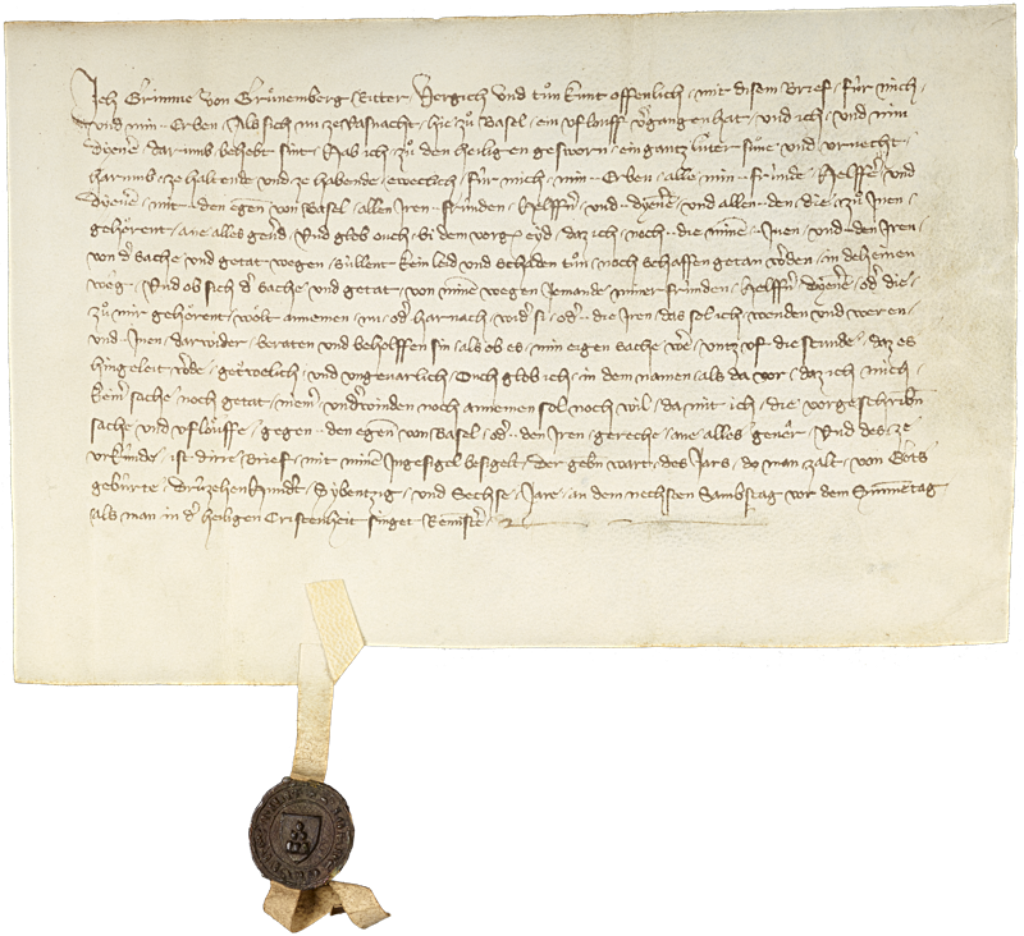 Ich Grimme von Gruͦnemberg Ritter, Vergich und tuͦn kunt offenlich, mit disem Brief, fuͥr mich,
und min .. Erben, Als sich nu ze vasnacht, hie, zuͦ Basel, ein uflouff v'gangen hat, und ich, und mini
dyen'e, darumb, behebt sint, Hab ich, zuͦ den heiligen gesworn, ein gantz luter suͦne, und urvecht,
harumb, ze haltende und ze habende, eweclich, fuͥr mich, min .. Erben, alle min .. fruͥnde, Helff'e, und
Dyen'e, mit .. den egen̄ von Basel, allen Iren .. fruͥnden, Helff'n, und .. dyen'e, und allen .. den, die, zuͦ Inen,
gehoͤrent, ane alles geu'd, Und glob ouch, bi dem vorg. eyd, daz ich, noch .. die minē .. Inen, und .. den Iren,
von d' sache und getat wegen, suͥllent kein leid und schaden tuͦn, noch schaffen getan w'den, in deheinen
weg, Und ob sich d' sache und getat, von minē wegen Jemande, miner fruͥnden, Helff'n, dyen'e, od' die,
zuͦ mir gehoͤrent, woͤlt annemen, nu, od' harnach, wid' si, od' .. die Iren, das sol ich, wenden und weren,
und .. Inen, darwider, beraten und beholffen sin, als ob es, min eigen sache, we'e, untz uf die stunde, daz es
hingeleit w'de, getruͥwelich, und ungeuarlich, Ouch glob ich, in dem namen, als da vor, daz ich mich,
keinr' sache, noch getat, niem', und'winden noch annemen sol noch wil, da mit ich, die vorgeschribn̄
sache und uflouͥffe, gegen .. den egen̄ von Basel, od' .. den Iren, gereche, ane, alles, geuer, Und des, ze
urkuͥnde, ist dirre Brief, mit minē Ingesigel besigelt, der gebn̄ wart, des Jars, do man zalt, von Gots
gebuͥrte, druͥzehenhund't, Sybentzig, und Sechse, Jare, an dem nechsten Sambstag vor dem Sunnētag
als man in d' heiligen Cristenheit singet Remisc'e,